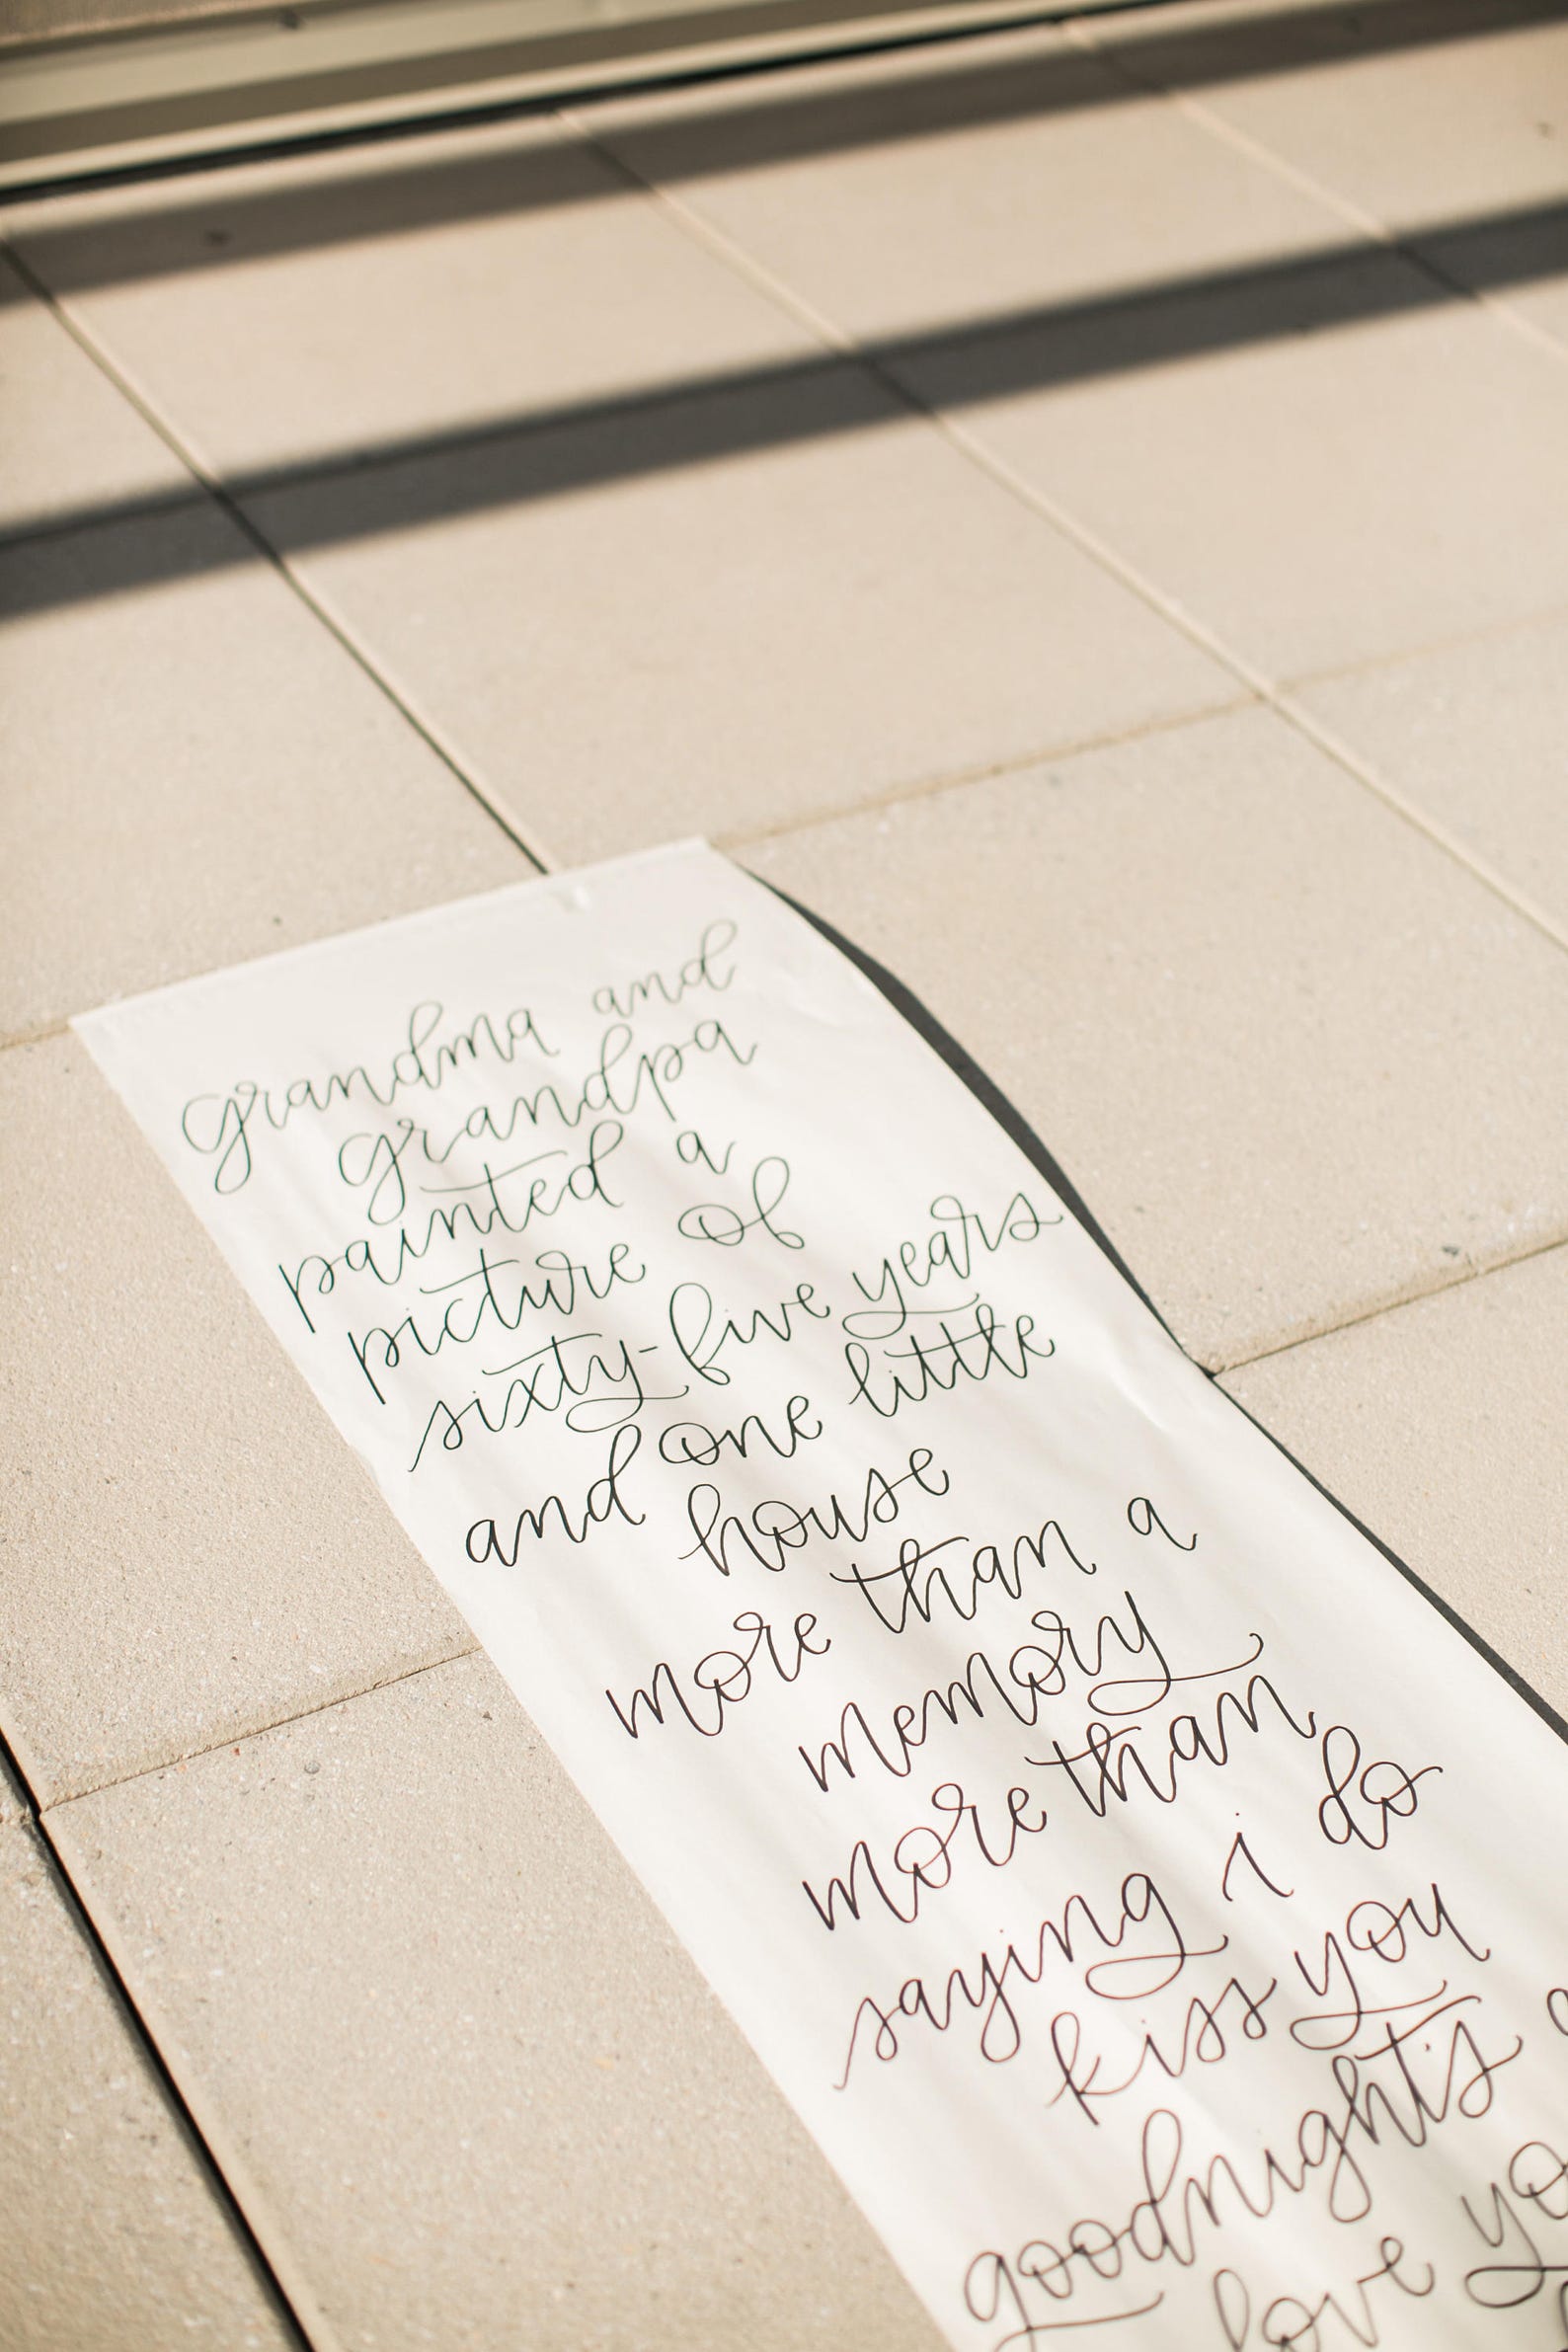 grandma and
grandpa
painted a
picture of
sixty-five years
and one little
house
more than a
memory
more than
saying i do
kiss you
goodnight's
love